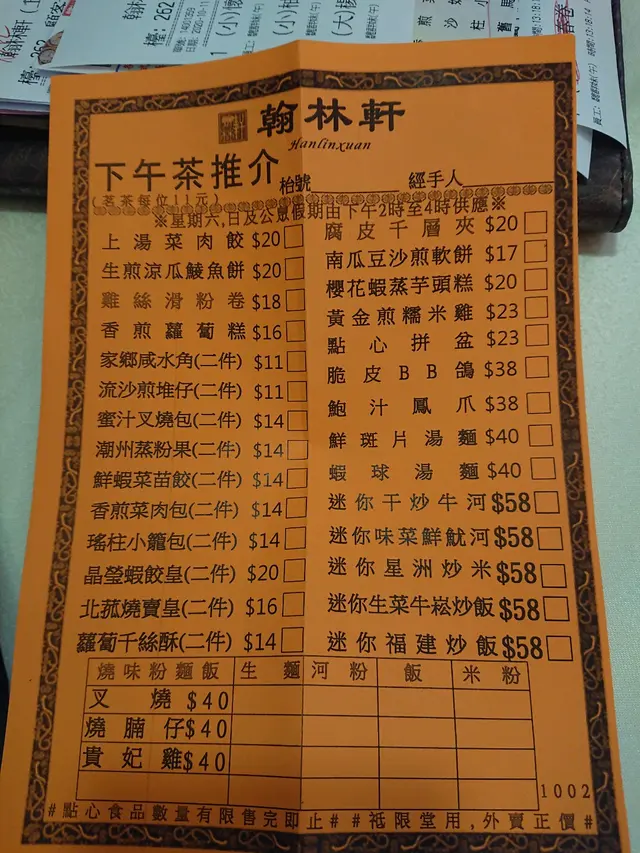 翰林軒
Hanlinxuan
下午茶推介
枱號 經手人
(茗茶每位11元)
※星期六,日及公眾假期由下午2時至4時供應※
上湯菜肉餃 $20
生煎涼瓜鯪魚餅 $20
雞絲滑粉卷 $18
香煎蘿蔔糕 $16
家鄉咸水角(二件) $11
流沙煎堆仔(二件) $11
蜜汁叉燒包(二件) $14
潮州蒸粉果(二件) $14
鮮蝦菜苗餃(二件) $14
香煎菜肉包(二件) $14
瑤柱小籠包(二件) $14
晶瑩蝦餃皇(二件) $20
北菰燒賣皇(二件) $16
蘿蔔千絲酥(二件) $14
腐皮千層夾 $20
南瓜豆沙煎軟餅 $17
櫻花蝦蒸芋頭糕 $20
黃金煎糯米雞 $23
點心拼盆 $23
脆皮BB鴿 $38
鮑汁鳳爪 $38
鮮斑片湯麵 $40
蝦球湯麵 $40
迷你干炒牛河 $58
迷你味菜鮮魷河 $58
迷你星洲炒米 $58
迷你生菜牛崧炒飯 $58
迷你福建炒飯 $58
燒味粉麵飯 生麵 河粉 飯 米粉
叉燒 $40
燒腩仔 $40
貴妃雞 $40
1002
#點心食品數量有限售完即止# #祗限堂用,外賣正價#